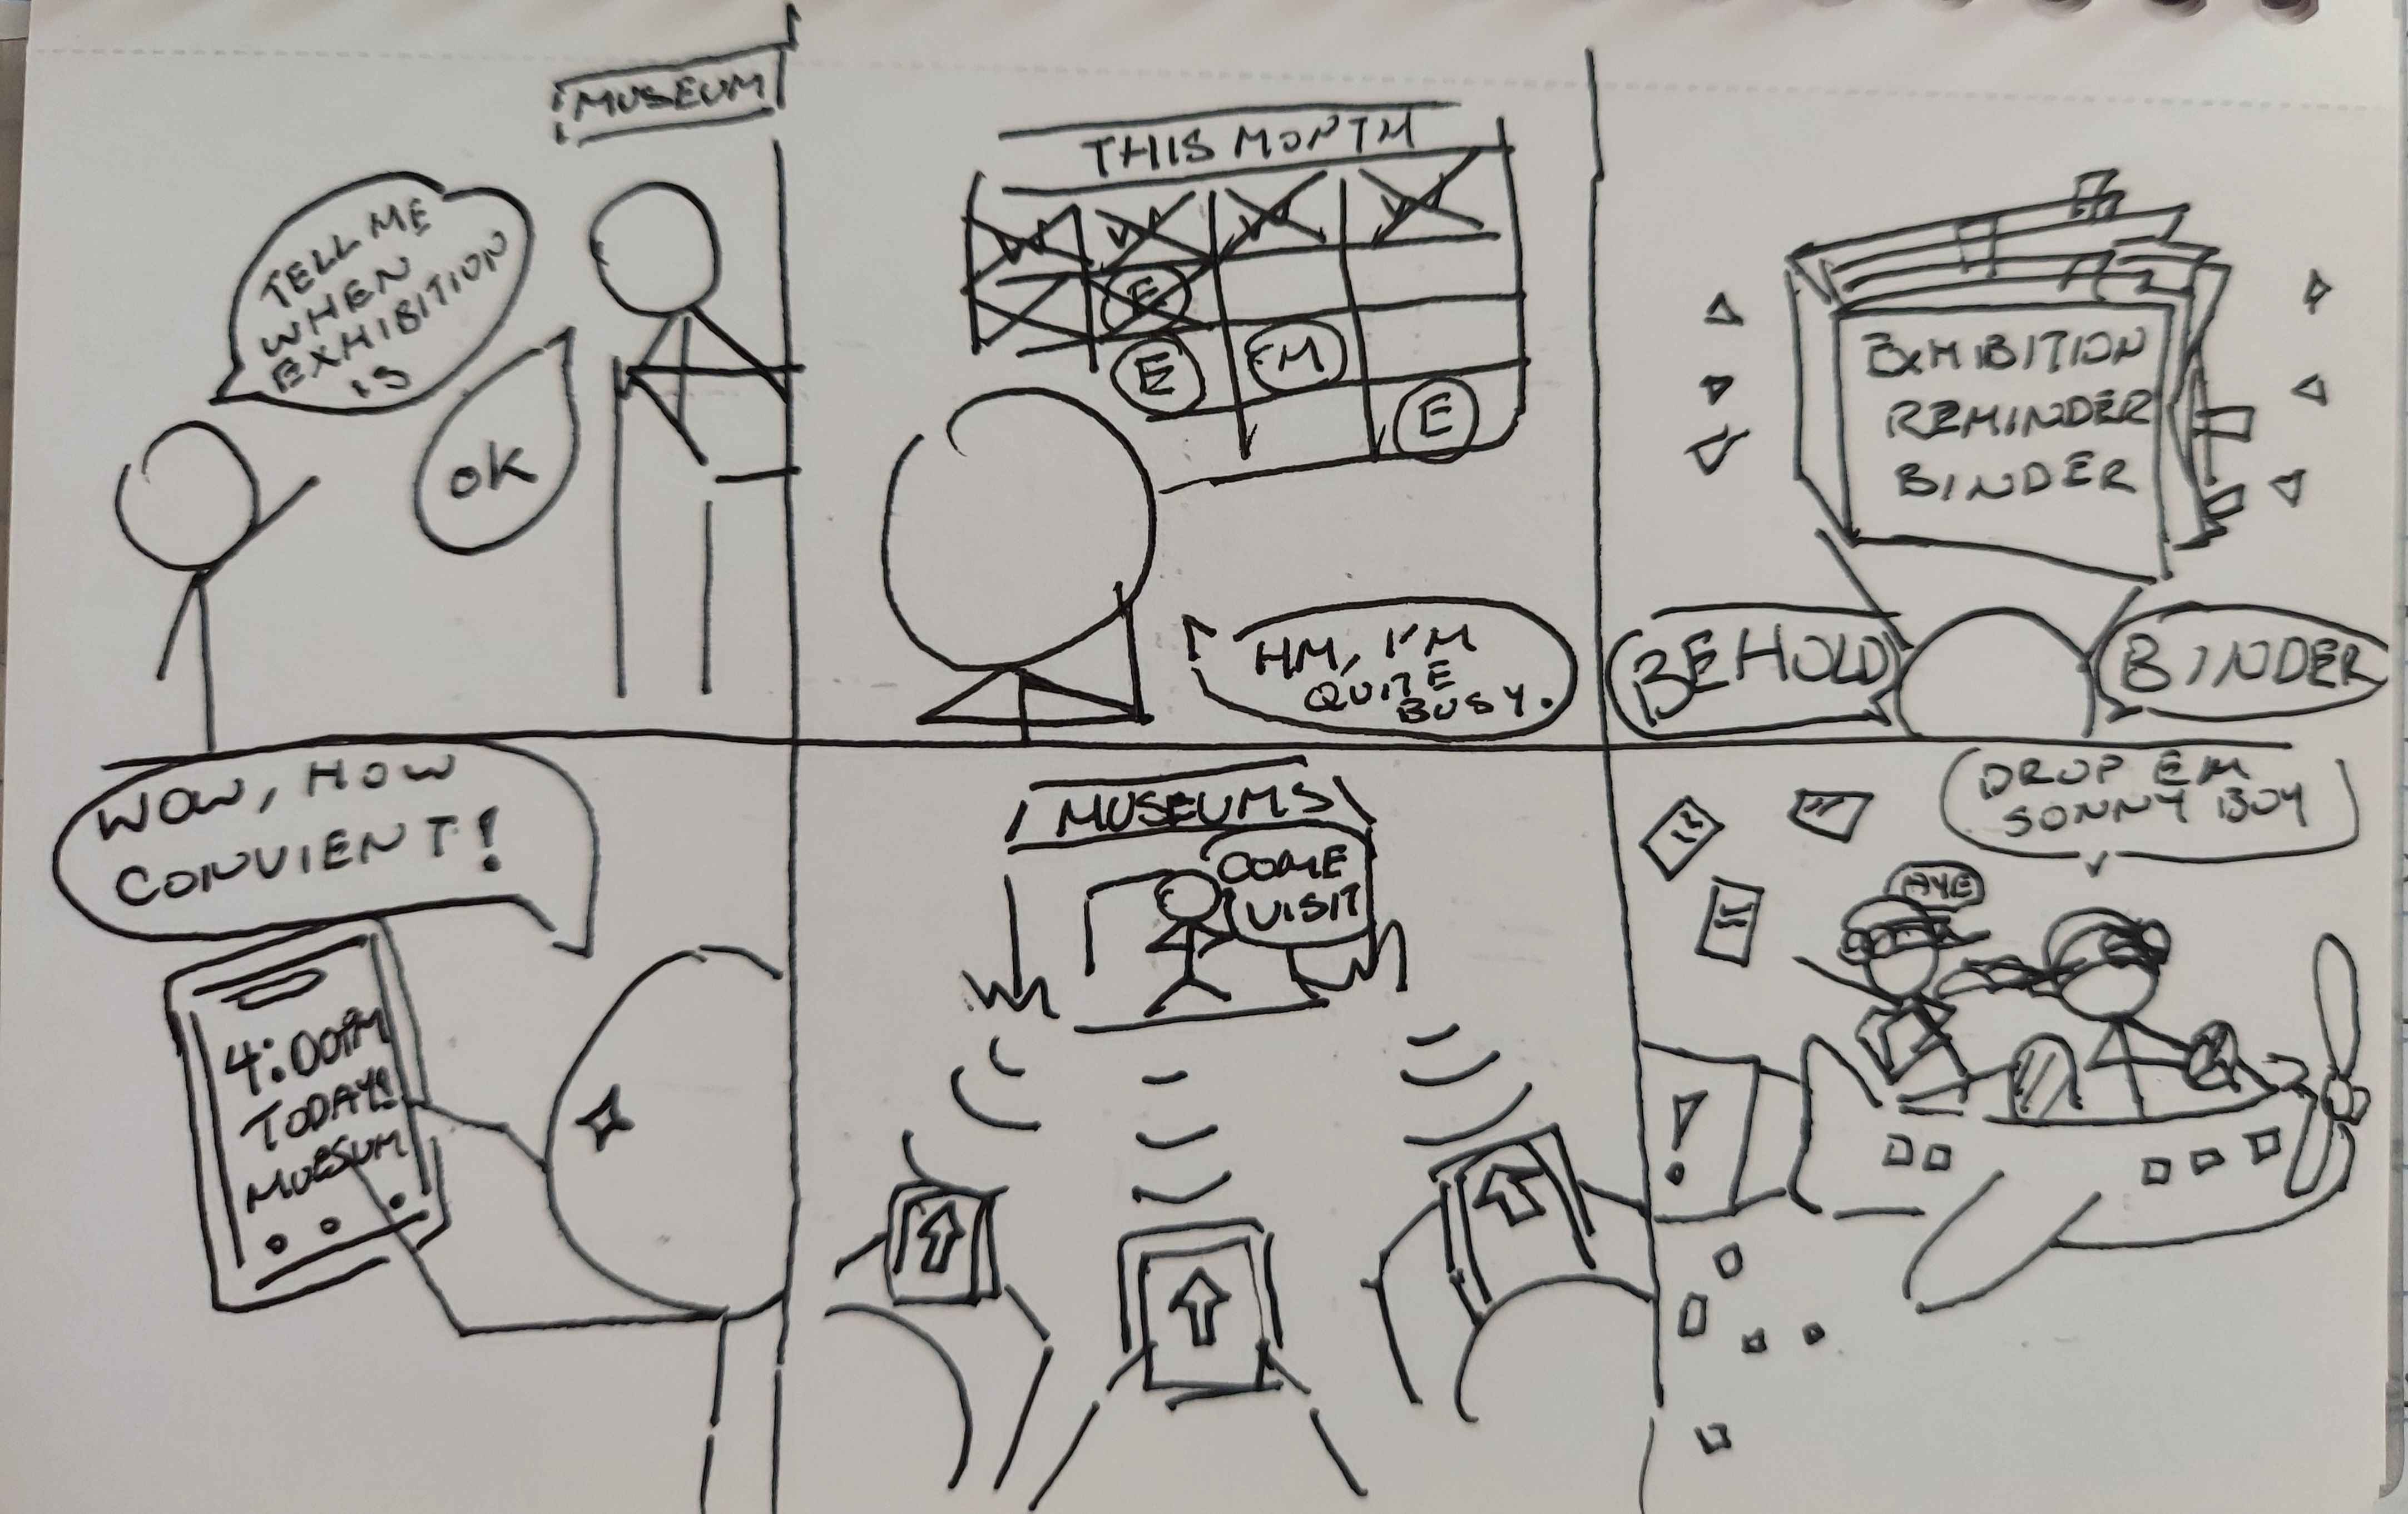 MUSEUM
TELL ME
WHEN
EXHIBITION
IS
OK
THIS MONTH
E
E
E
HM, I'M
QUITE
BUSY.
EXHIBITION
REMINDER
BINDER
BEHOLD
BINDER
WOW, HOW
CONVIENT!
4:00PM
TODAY!
MUESUM
MUSEUMS
COME
VISIT
DROP EM
SONNY BOY
AYE
!